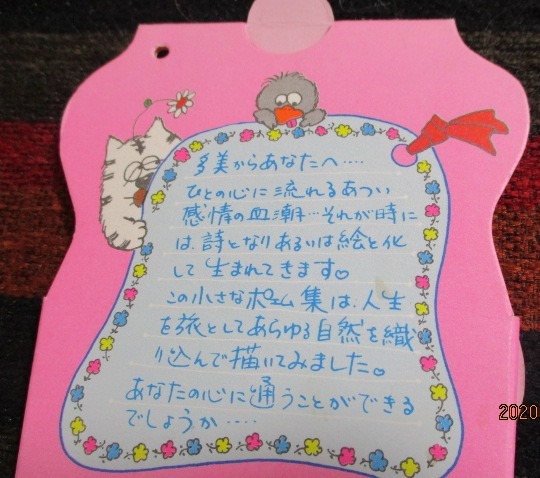 多美からあなたへ‥‥
ひとの心に流れるあつい
感情の血潮…それが時に
は、詩となりあるいは絵と化
して生まれてきます。
この小さなポエム集は、人生
を旅としてあらゆる自然を織
り込んで描いてみました。
あなたの心に通うことができる
でしょうか‥‥
2020